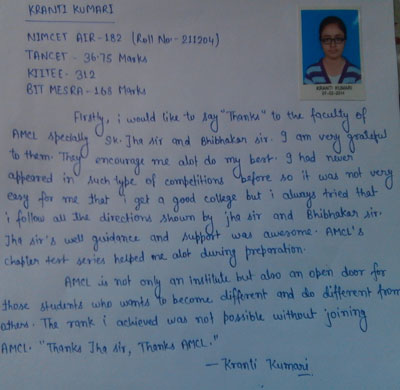 KRANTI KUMARI
NIMCET AIR - 182 (Roll No - 211204)
TANCET - 36.75 Marks
KIITEE - 312
BIT MESRA - 168 Marks
KRANTI KUMARI
Firstly, i would like to say "Thanks" to the faculty of
AMCL specially Sk. Jha sir and Bhibhakar sir. I am very grateful
to them. They encourage me alot do my best. I had never
appeared in such type of competitions before so it was not very
easy for me that i get a good college but i always tried that
i follow all the directions shown by jha sir and Bhibhakar sir.
Jha sir's well guidance and support was awesome. AMCL's
chapter test series helped me alot during preparation.
AMCL is not only an institute but also an open door for
those students who wants to become different and do different from
others. The rank i achieved was not possible without joining
AMCL. "Thanks Jha sir, Thanks AMCL."
— Kranti Kumari